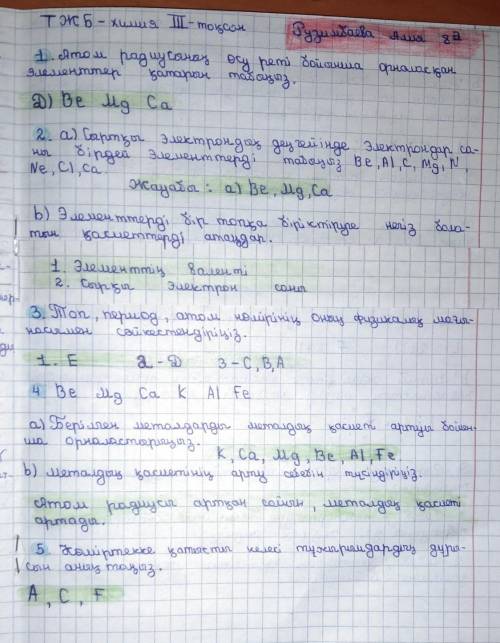 ТЖБ - химия III - тоқсан Рузимбаева Алия 8а
1. Атом радиусаның өсу реті бойынша орналасқан
элементтер қатарын табаңыз.
Д) Be Mg Ca
2. а) Сыртқы электрондық деңгейінде электрондар са-
ны бірдей элементтерді табаңыз Be, Al, C, Mg, N,
Ne, Cl, Ca
Жауабы : а) Be, Mg, Ca
b) Элементтерді бір топқа біріктіруге негіз бола-
тын қасиеттерді атаңдар.
1. Элементтің валенті
2. Сыртқы электрон саны
3. Топ, период, атом нөмірінің оның физикалық мағы-
насымен сәйкестендіріңіз.
1. E 2 - Д 3 - С, В, А
4 Be Mg Ca K Al Fe
а) Берілген металдарды металдық қасиеті артуы бойын-
ша орналастырыңыз.
K, Ca, Mg, Be, Al, Fe
b) Металдық қасиетінің арту себебін түсіндіріңіз.
Атом радиусы артқан сайын, металдық қасиеті
артады.
5. Көміртекке қатысты келесі тұжырымдардың дұры-
сын анықтаңыз.
A, C, F